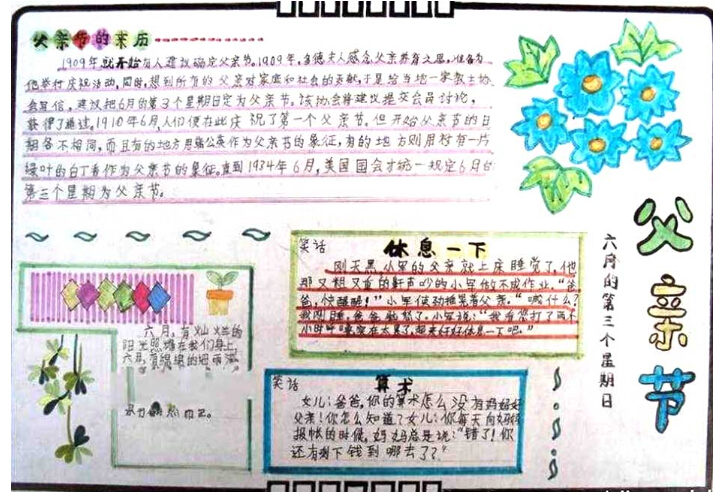 父亲节的来历
1909年就开始有人建议确定父亲节。1909年,多德夫人感念父亲养育之恩,准备为
他举行庆祝活动,同时,想到所有的父亲对家庭和社会的贡献,于是给当地一家教士协
会写信,建议把6月的第3个星期日定为父亲节。该协会将建议提交会员讨论,
获得了通过。1910年6月,人们便在此庆祝了第一个父亲节。但开始父亲节的日
期各不相同,而且有的地方用蒲公英作为父亲节的象征,有的地方则用衬有一片
绿叶的白丁香作为父亲节的象征。直到1934年6月,美国国会才统一规定6月的
第三个星期为父亲节。
父亲节
六月的第三个星期日
笑话
休息一下
刚天黑,小军的父亲就上床睡觉了,他
那又粗又重的鼾声吵的小军做不成作业。“爸
爸,快醒醒!”小军使劲推
着父亲。“喊什么?
爸爸
小军说:“我看您打了两个
小时呼噜,实在太累了,起来好好休息一下吧。”
六月,有灿烂的
阳光照耀在我们身上,
六月,有绵绵的细雨滋
笑话
算术
女儿:爸爸,你的算术怎么没有妈妈好
父亲!你怎么知道?女儿:你每天向妈妈
报帐的时候,妈妈总是说:“错了!你
还有剩下钱到哪去了?”